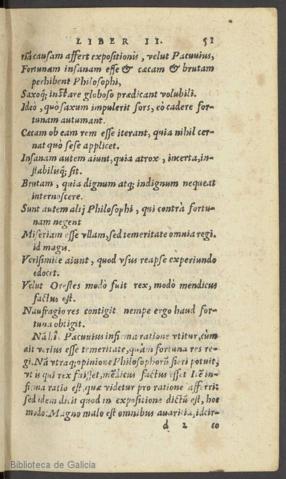 LIBER II. 51
nã causam affert expositionis, velut Pacuuius,
Fortunam insanam esse & cæcam & brutam
perhibent Philosophi,
Saxoq; instare globoso prædicant volubili.
Ideò, quò saxum impulerit sors, eò cadere for-
tunam autumant.
Cæcam ob eam rem esse iterant, quia nihil cer-
nat quò sese applicet.
Insanam autem aiunt, quia atrox, incerta, in-
stabilisq; sit.
Brutam, quia dignum atq; indignum nequeat
internoscere.
Sunt autem alij Philosophi, qui contrà fortu-
nam negent
Miseriam esse vllam, sed temeritate omnia regi.
id magis.
Verisimile aiunt, quod vsus reapse experiundo
edocet.
Velut Orestes modò fuit rex, modò mendicus
factus est.
Naufragio res contigit nempe ergo haud for-
tuna obtigit.
Nã hîc Pacuuius infirma ratione vtitur, cùm
ait verius esse temeritate, quàm fortuna res re-
gi. Nã vtraq; opinione Philosophorũ fieri potuit,
vt is qui rex fuisset, mẽdicus factus esset. Itẽ in-
firma ratio est, quæ videtur pro ratione afferri:
sed idem dicit quod in expositione dictũ est, hoc
modo: Magno malo est omnibus auaritia, idcir-
d 2 co
Biblioteca de Galicia